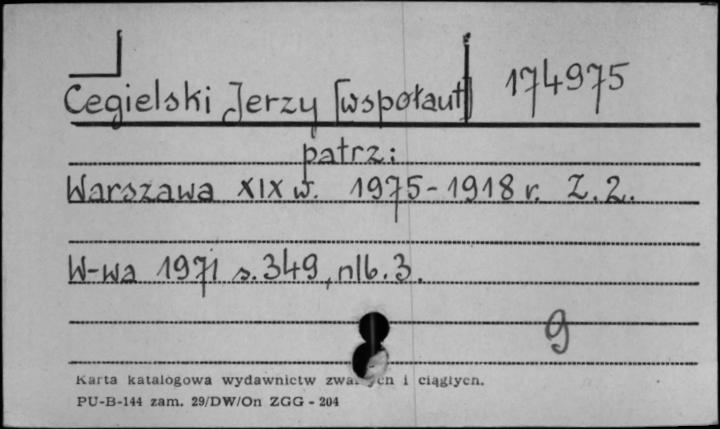 Cegielski Jerzy [współaut] 174975
patrz:
Warszawa XIX w. 1975-1918 r. Z.2.
W-wa 1971 s.349, nlb.3.
9
Karta katalogowa wydawnictw i ciągłych.
PU-B-144 zam. 29/DW/On ZGG - 204